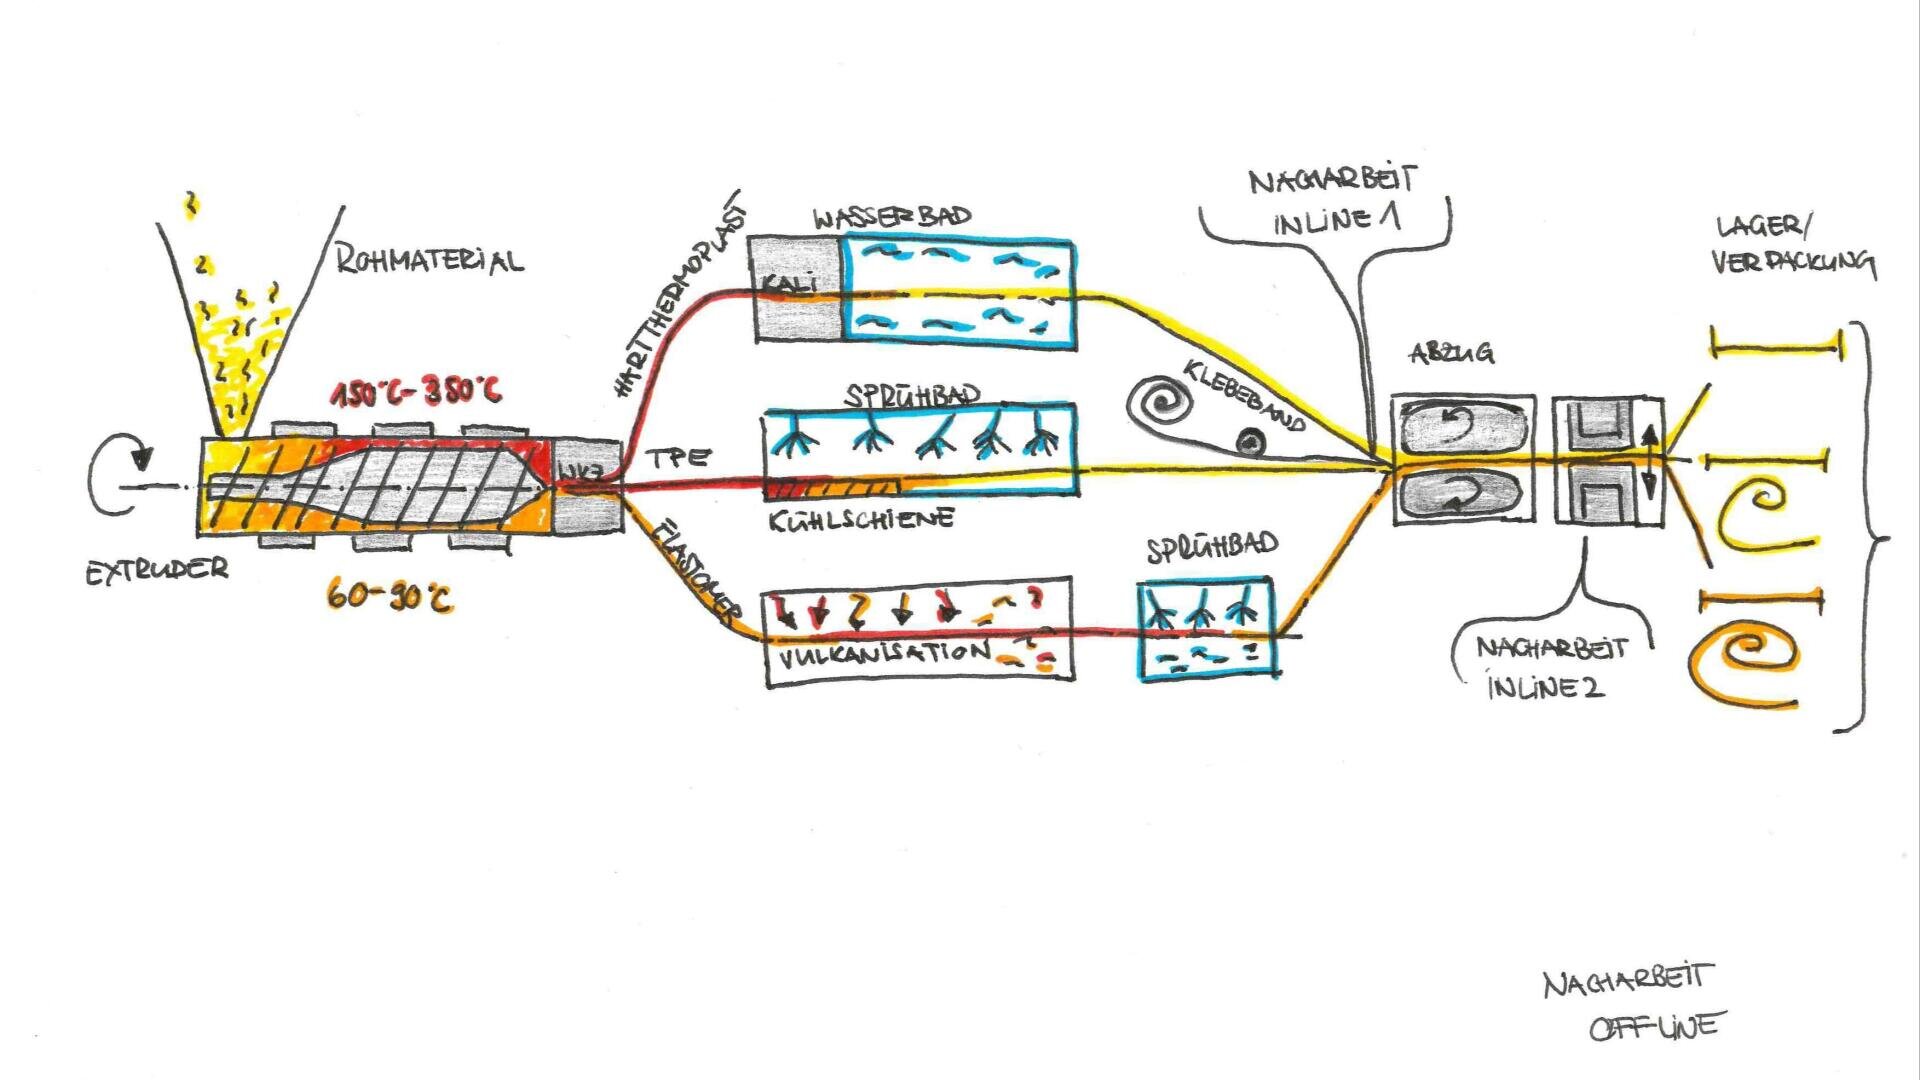 ROHMATERIAL
150°C-350°C
EXTRUDER
60-90°C
WKZ
HARTTHERMOPLAST
TPE
ELASTOMER
WASSERBAD
KALI
SPRÜHBAD
KÜHLSCHIENE
VULKANISATION
SPRÜHBAD
KLEBEBAND
NACHARBEIT
INLINE 1
ABZUG
NACHARBEIT
INLINE 2
LAGER/
VERPACKUNG
NACHARBEIT
OFFLINE